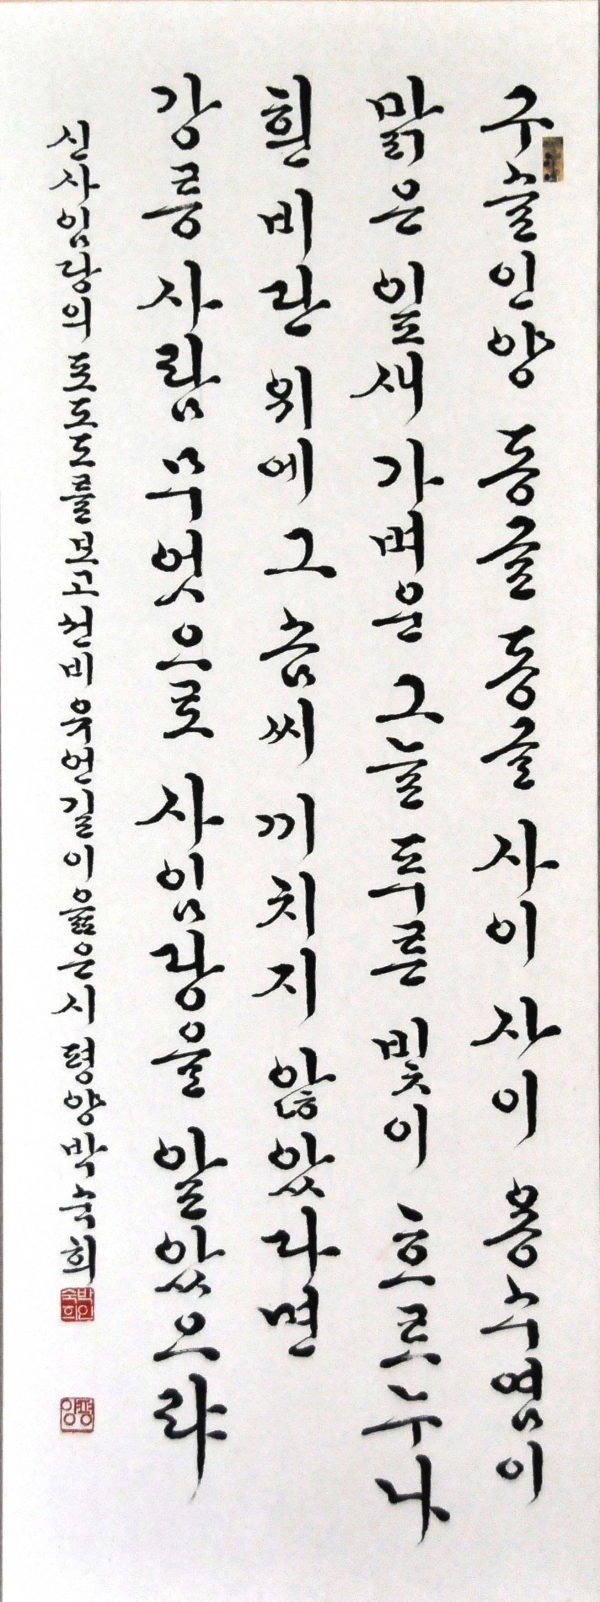 구슬인양 둥글 둥글 사이 사이 용수염이
맑은 잎새 가벼운 그늘 푸른 빛이 흐르누나
흰 비단 위에 그 솜씨 끼치지 않았다면
강릉 사람 무엇으로 사임당을 알았으랴
신사임당의 포도도를 보고 선비 유언길이 읊은 시 평양 박숙희